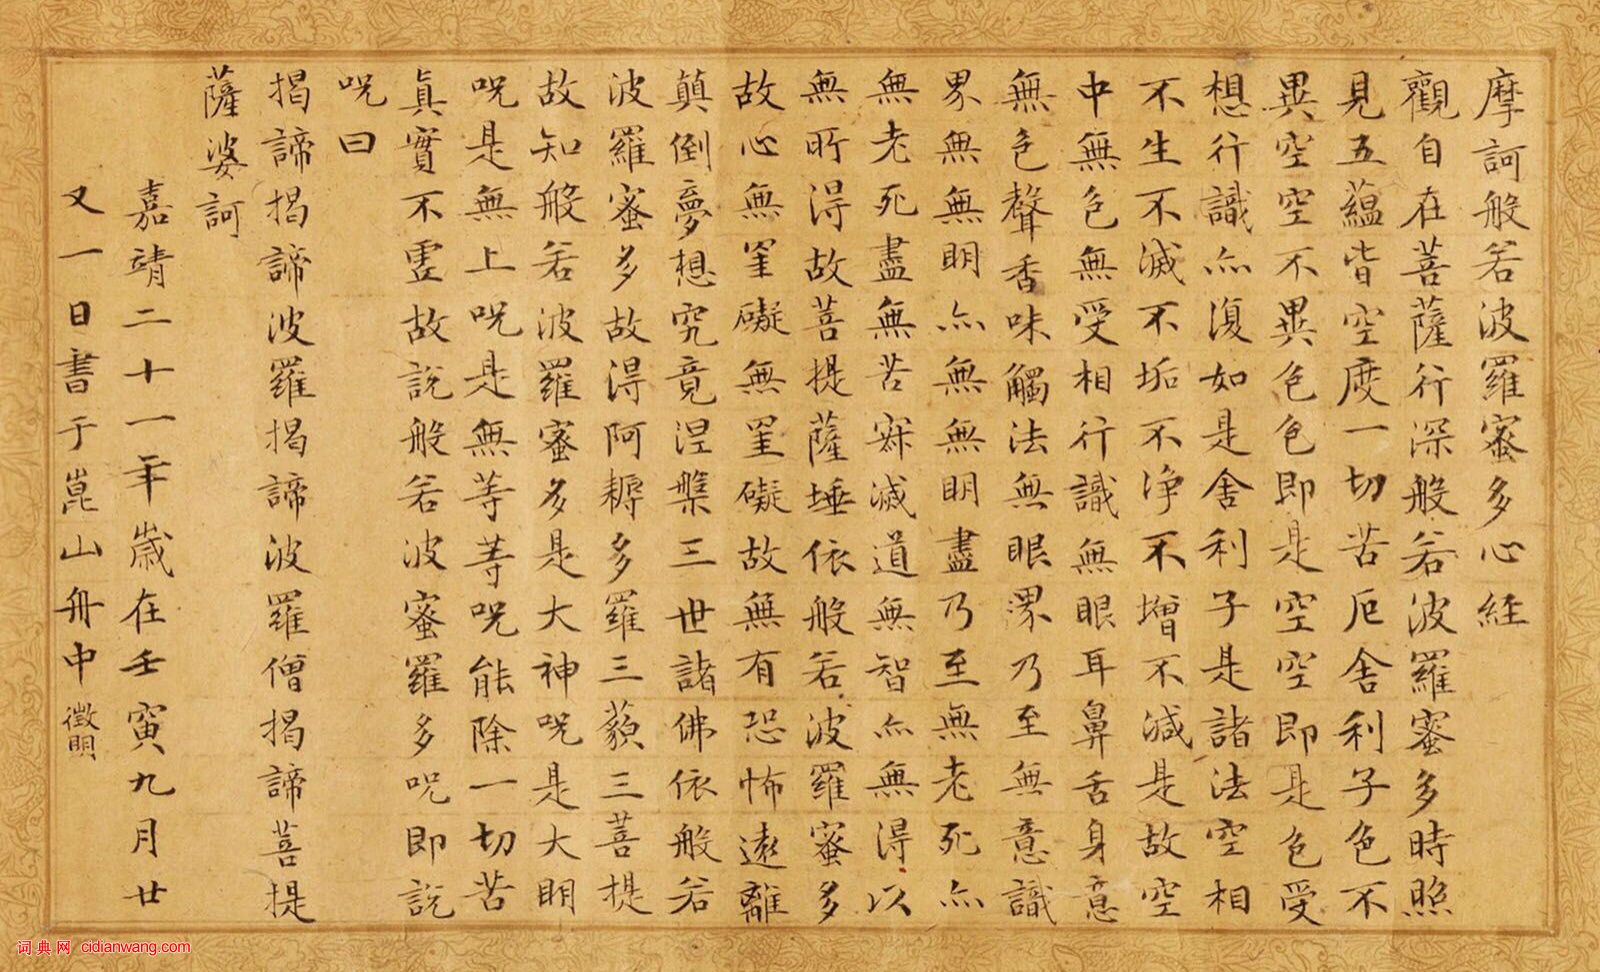 摩訶般若波羅蜜多心経
觀自在菩薩行深般若波羅蜜多時照
見五蘊皆空度一切苦厄舍利子色不
異空空不異色色即是空空即是色受
想行識亦復如是舍利子是諸法空相
不生不滅不垢不淨不增不減是故空
中無色無受相行識無眼耳鼻舌身意
無色聲香味觸法無眼界乃至無意識
界無無明亦無無明盡乃至無老死亦
無老死盡無苦寂滅道無智亦無得以
無所得故菩提薩埵依般若波羅蜜多
故心無罣礙無罣礙故無有恐怖遠離
顛倒夢想究竟涅槃三世諸佛依般若
波羅蜜多故得阿耨多羅三藐三菩提
故知般若波羅蜜多是大神呪是大明
呪是無上呪是無等等呪能除一切苦
真實不虛故說般若波蜜羅多呪即說
呪曰
揭諦揭諦波羅揭諦波羅僧揭諦菩提
薩婆訶
嘉靖二十一年歲在壬寅九月廿
又一日書于崑山舟中 徵明
词典网 cidianwang.com